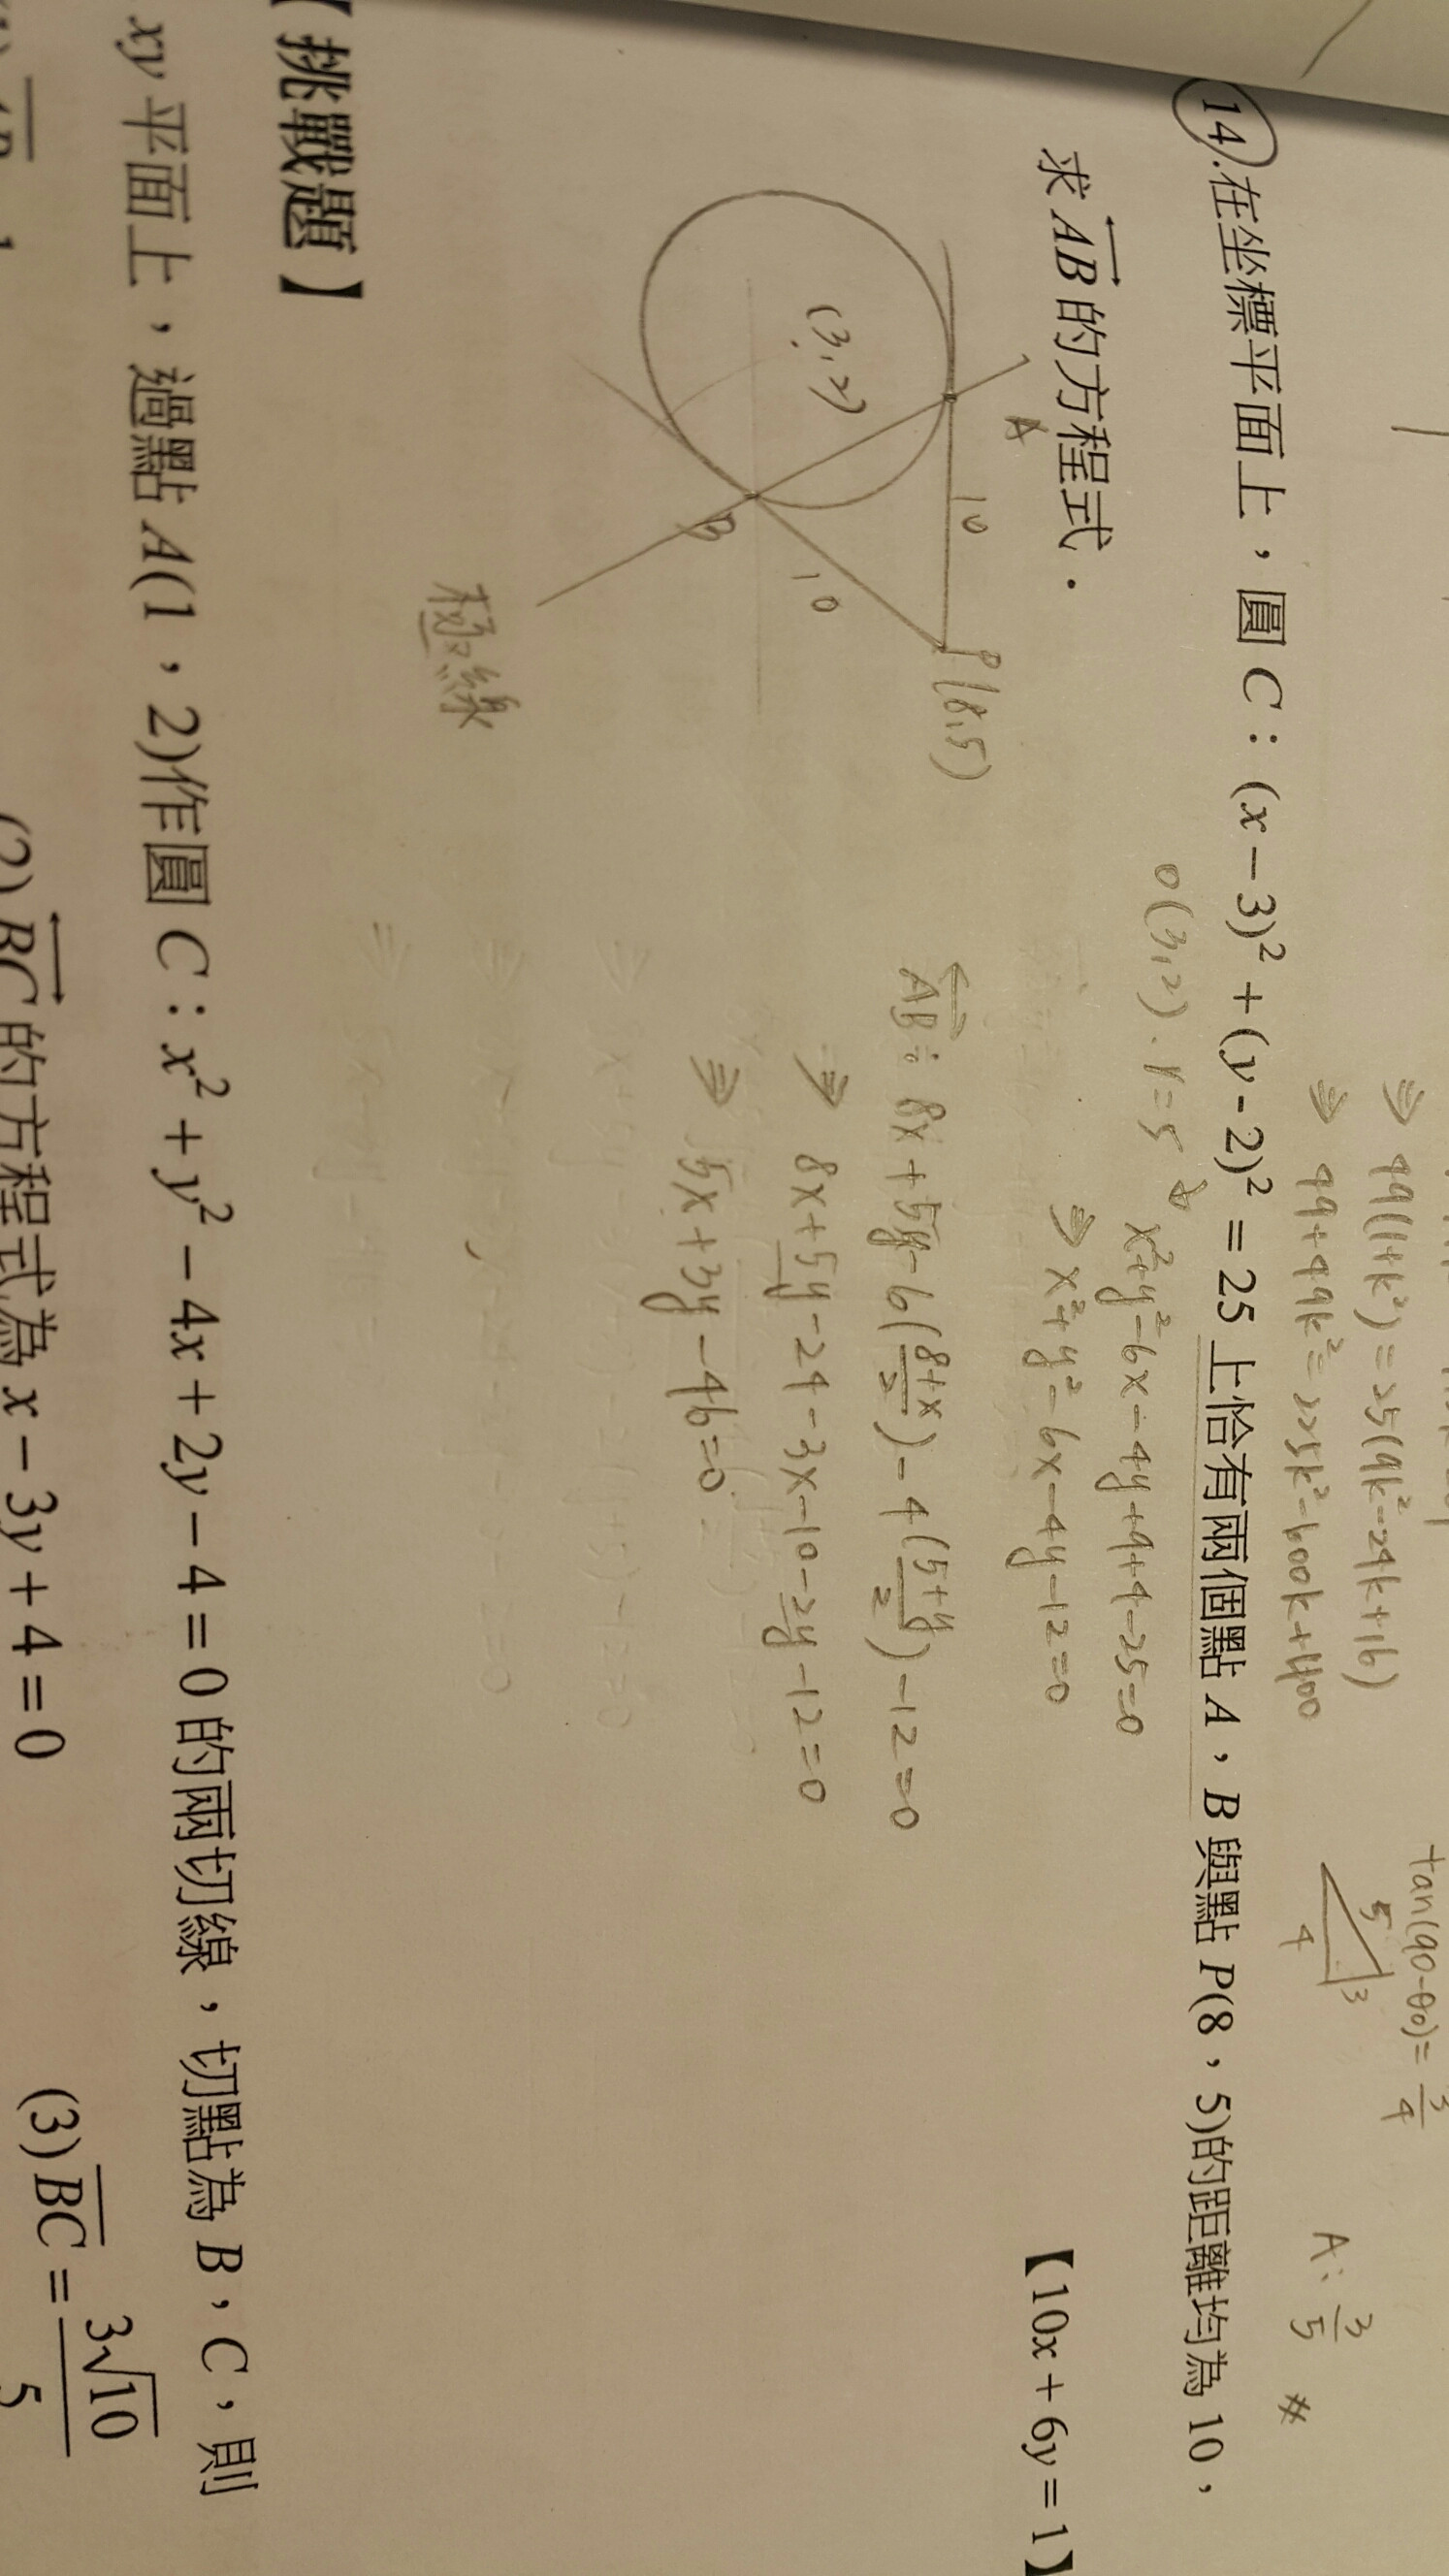 ⇒ 49(1+k²)=25(9k²-24k+16)
⇒ 49+49k²=225k²-600k+400
tan(90-θ)=3/4
5
3
4
A: 3/5 #
14.在坐標平面上，圓 C：(x－3)²＋(y-2)²＝25 上恰有兩個點 A，B 與點 P(8，5)的距離均為 10，
O(3,2)．r=5
x²+y²-6x-4y+9+4-25=0
求 AB 的方程式．
【10x＋6y＝1】
⇒ x²+y²-6x-4y-12=0
A
10
P(8,5)
(3,2)
10
B
極線
AB: 8x+5y-6((8+x)/2)-4((5+y)/2)-12=0
⇒ 8x+5y-24-3x-10-2y-12=0
⇒ 5x+3y-46=0
【挑戰題】
xy 平面上，過點 A(1，2)作圓 C：x²＋y²－4x＋2y－4＝0 的兩切線，切點為 B，C，則
(2) BC 的方程式為 x－3y＋4＝0
(3) BC＝3√10/5